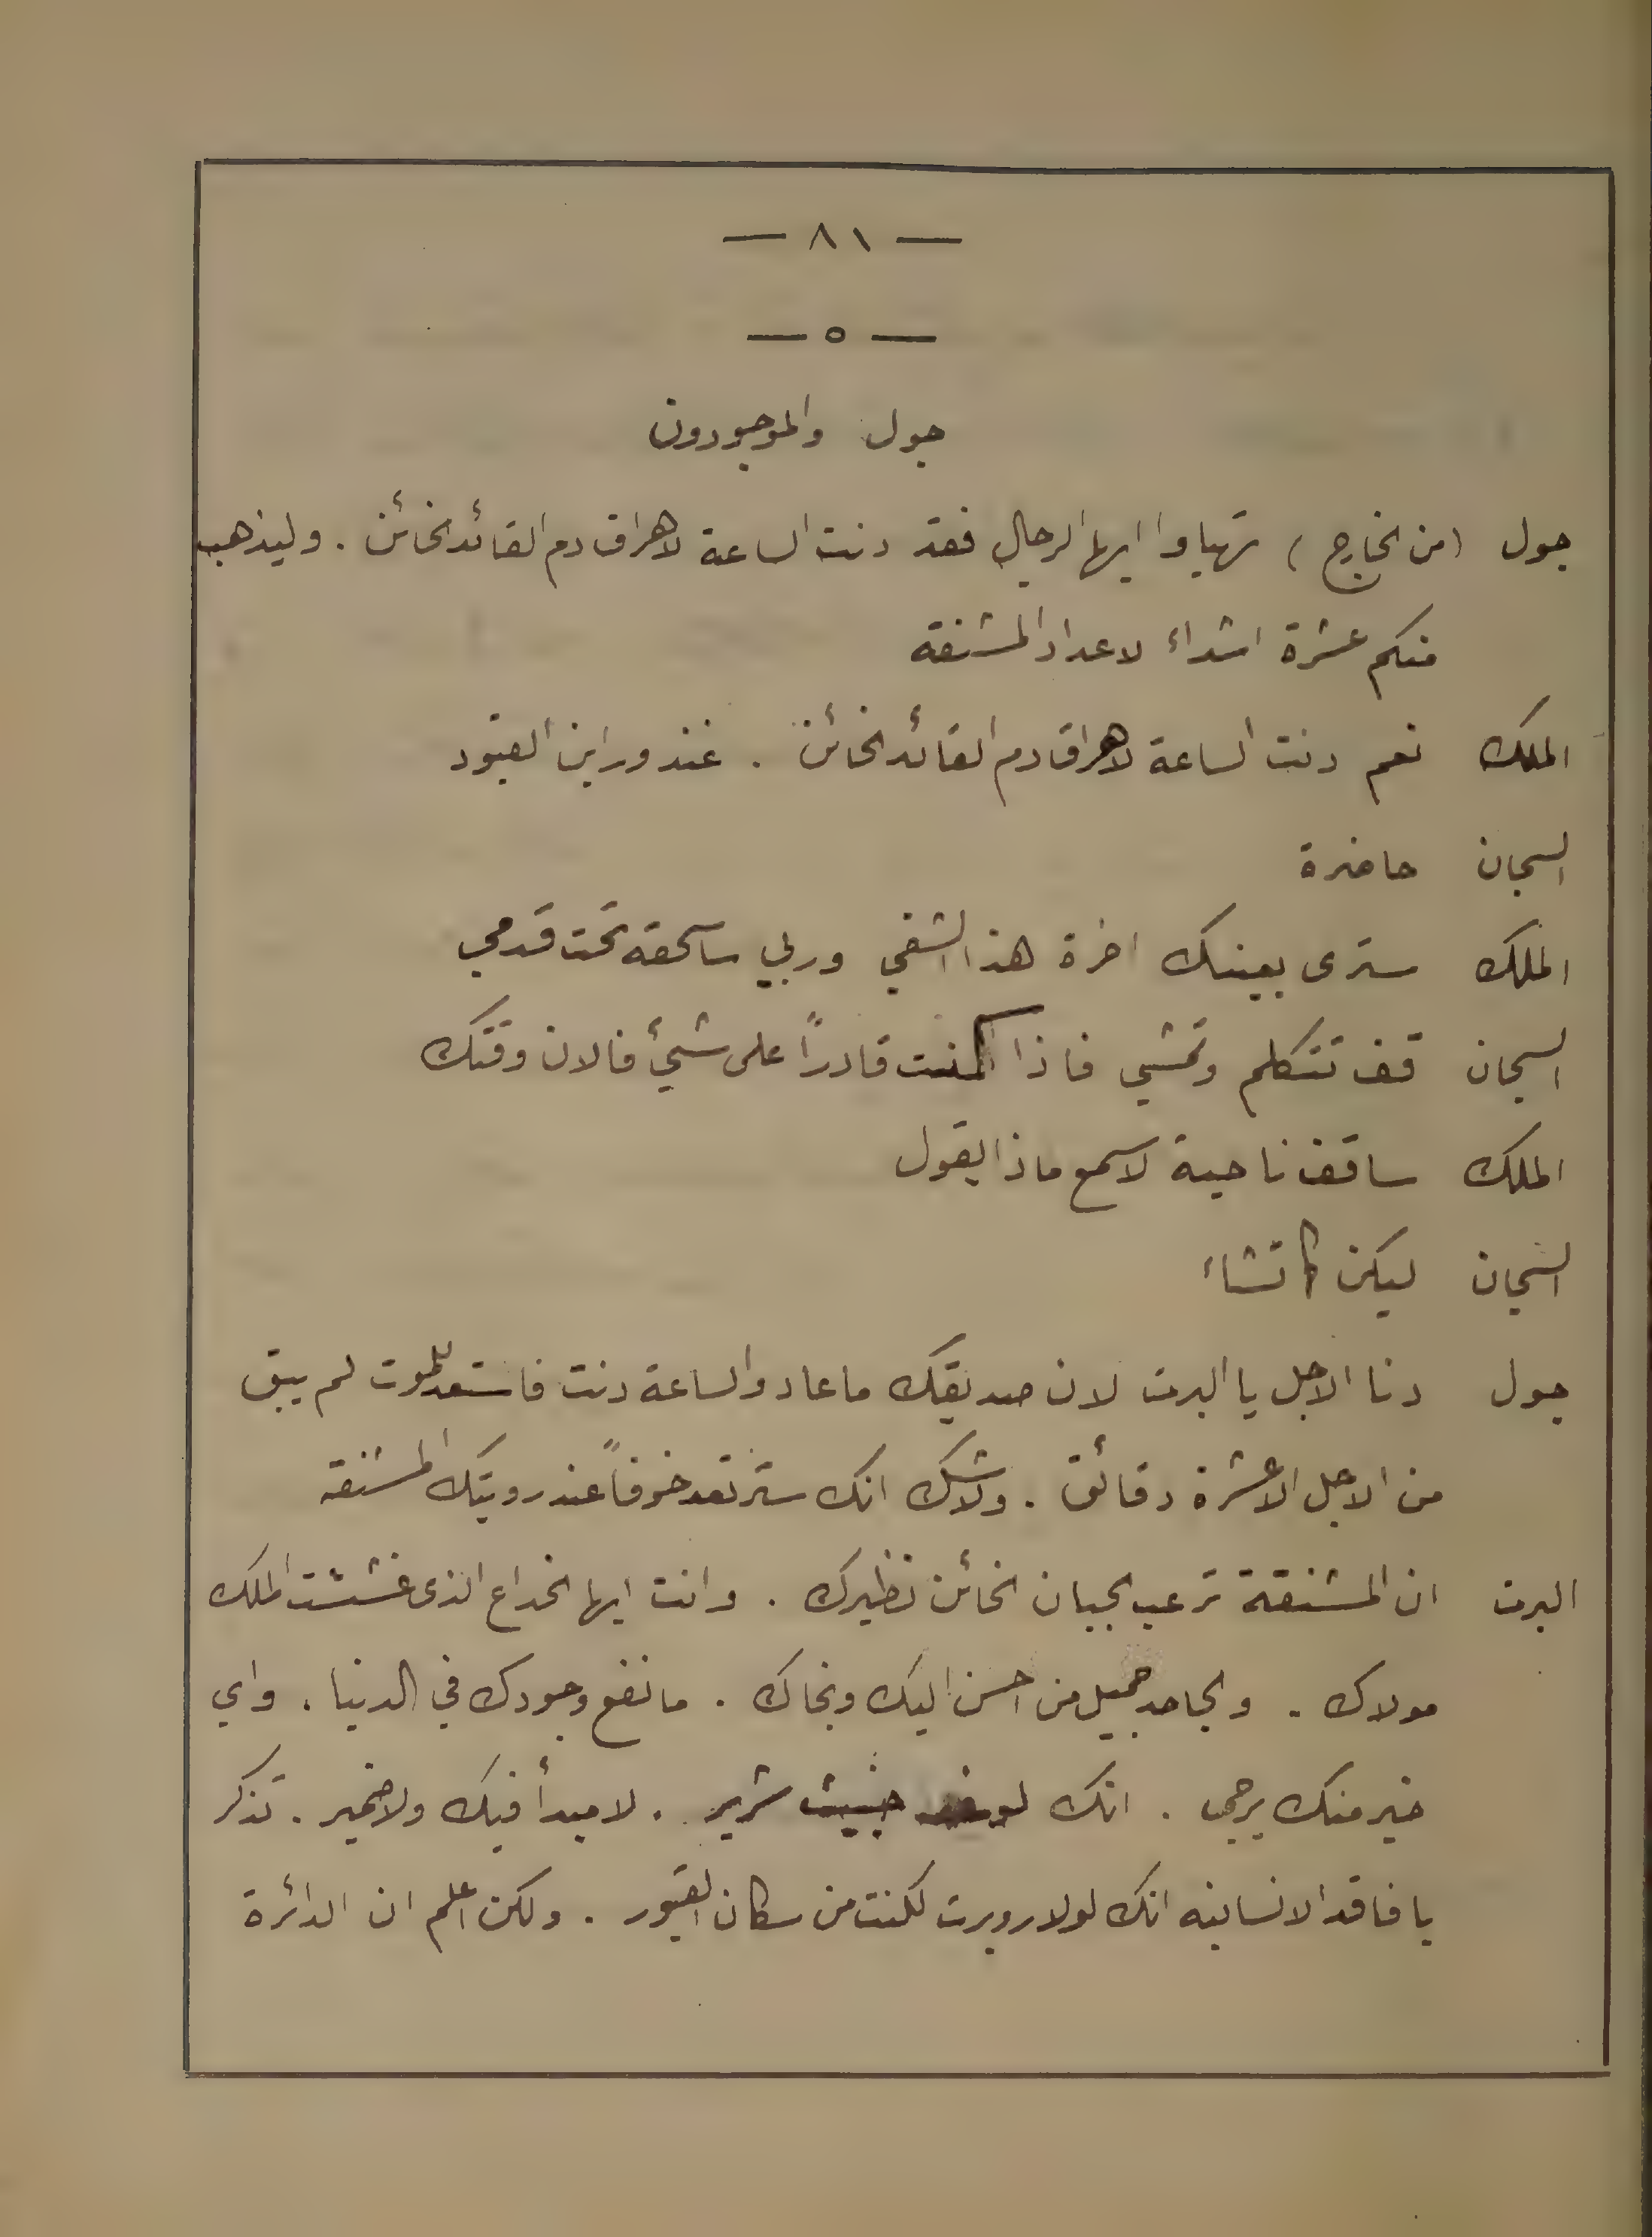 — ٨١ —
— ٥ —
جول والموجودون
جول (من الخارج) تهياوا ايها الرجال فقد دنت الساعة لاهراق دم القائد الخائن . وليذهب
منكم عشرة اشداء لاعداد المشنقة
الملك نعم دنت الساعة لاهراق دم القائد الخائن . غندور اين القيود
السجان حاضرة
الملك سترى بعينك اخرة هذا الشقي وربي ساسحقه تحت قدمي
السجان قف تتكلم وتمشي فاذا كنت قادراً على شيئ فالان وقتك
الملك ساقف ناحية لاسمع ماذا يقول
السجان ليكن كما تشاء
جول دنا الاجل يا البرت لان صديقك ما عاد والساعة دنت فاستعد للموت لم يبق
من الاجل الا عشرة دقائق . ولا شك انك سترتعد خوفاً عند رويتك المشنقه
البرت ان المشنقة ترعب الجبان الخائن نظيرك . وانت ايها الخداع الذى غششت الملك
مولاك . والجاحد جميل من احسن اليك ونجاك . ما نفع وجودك في الدنيا . واي
خير منك يرجى . انك خبيث شرير . لا مبدأ فيك ولا ضمير . تذكر
يا فاقد الانسانيه انك لولا روبرت لكنت من سكان القبور . ولكن اعلم ان الدائرة